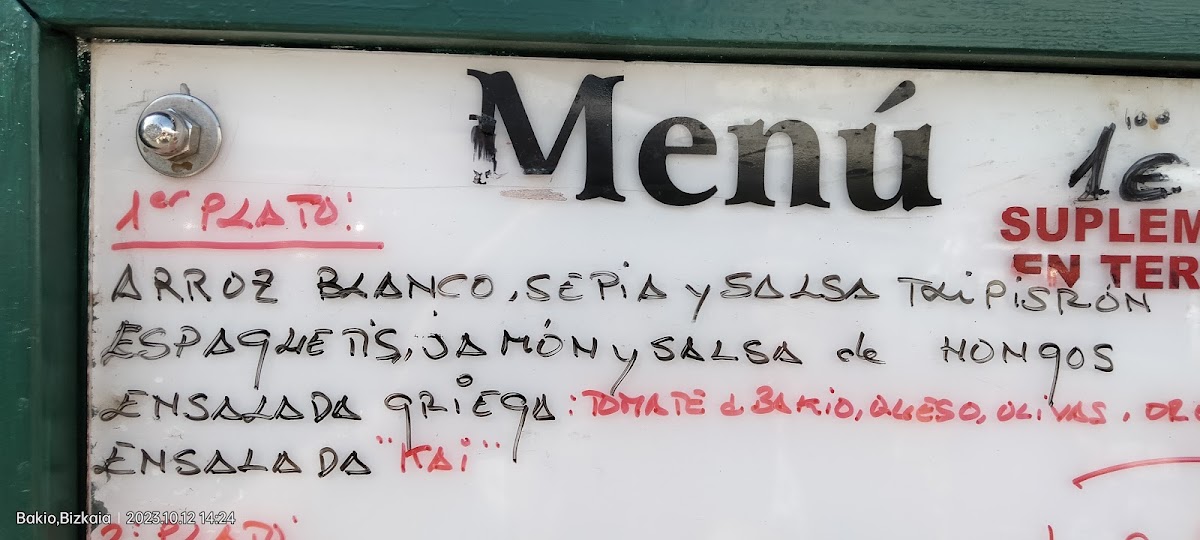 Menú
1€
SUPLEM
EN TER
1er PLATO:
ARROZ BLANCO, SEPiA y SALSA TXiPiSRÓN
ESPAGUETIS, JAMÓN y SALSA de HONGOS
ENSALADA GRIEGA: TOMATE d BAKiO, QUESO, OLIVAS, ORE
ENSALADA "KAi"
2: PLATO:
Bakio,Bizkaia | 2023.10.12 14:24